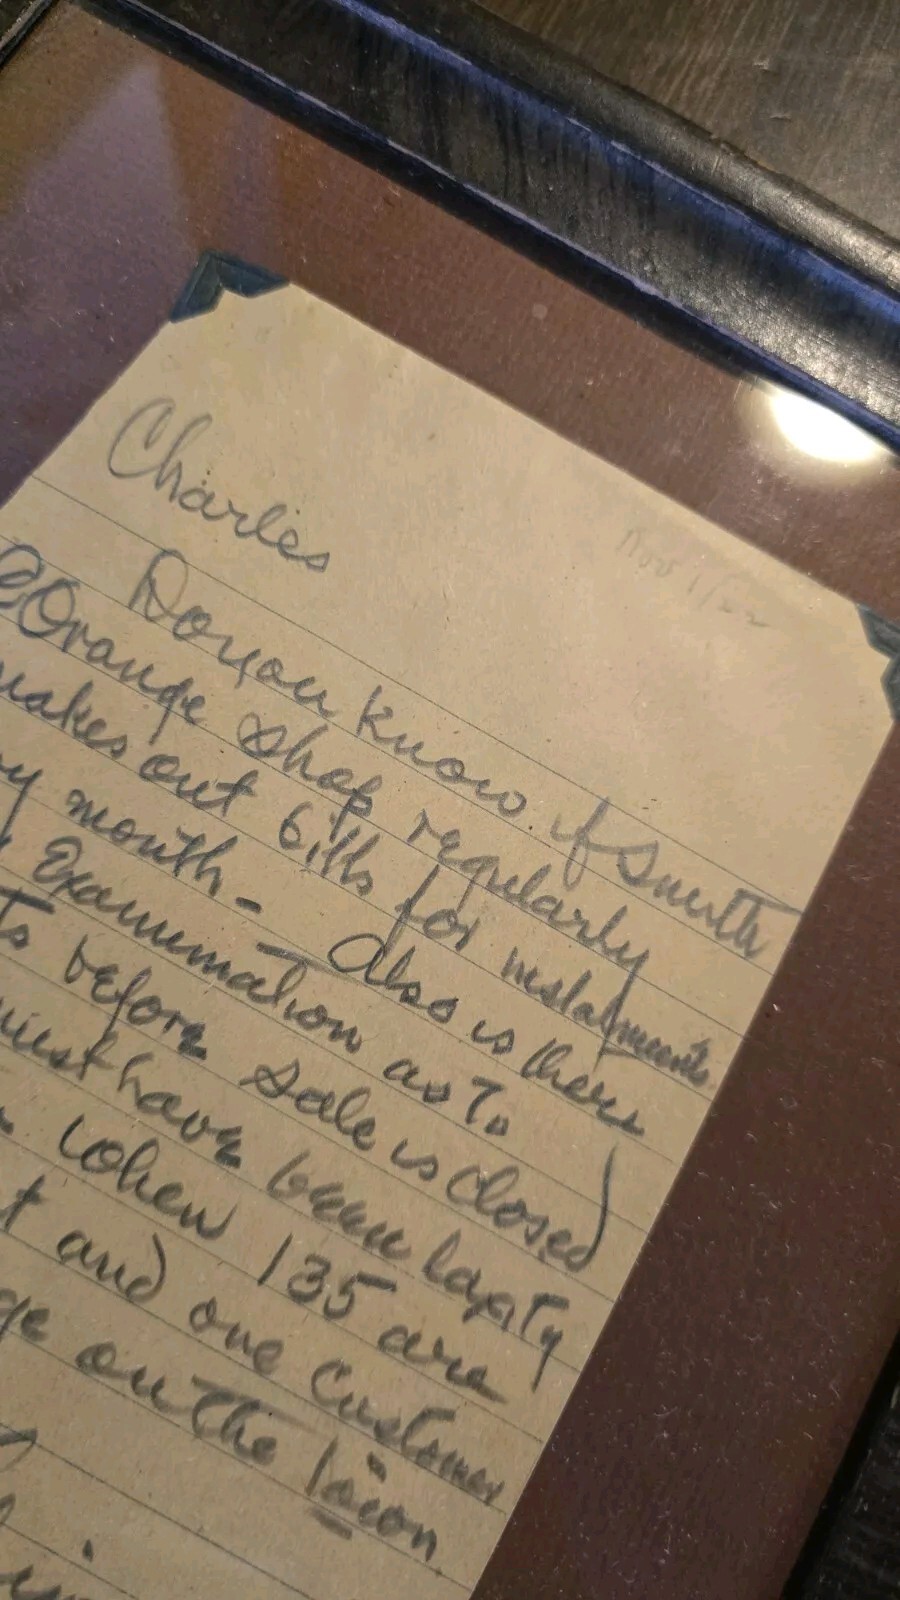 Charles
Nov 1/22
Do you know if Smith
@ Orange Shop regularly
makes out bills for instalments
month - Also is there
Examination as to
before Sale is closed
must have been laxity
when 135 are
and one Customer
on the 1 sion